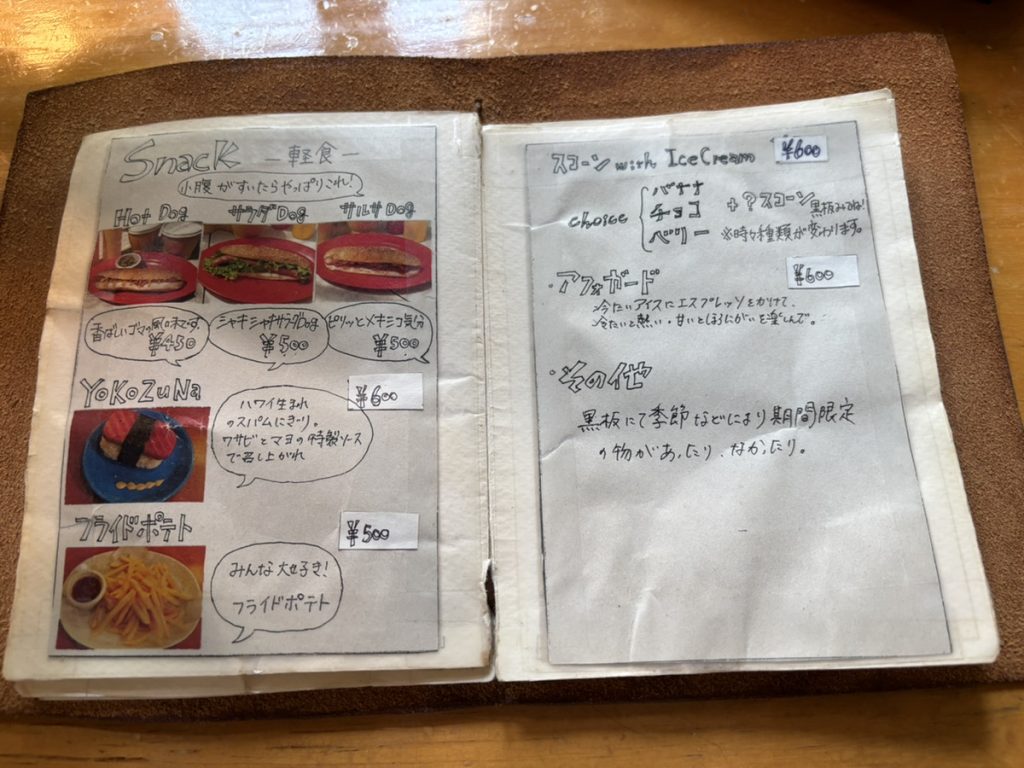 Snack －軽食－
小腹がすいたらやっぱりこれ!
Hot Dog
サラダDog
サルサDog
香ばしいゴマの風味です。
¥450
シャキシャキサラダDog
¥500
ピリッとメキシコ気分
¥500
YoKoZuNa
¥600
ハワイ生まれ
のスパムにぎーり。
ワサビとマヨの特製ソース
で召し上がれ
フライドポテト
¥500
みんな大好き!
フライドポテト
スコーン with IceCream ¥600
choice
バナナ
チョコ
ベリー
+ ? スコーン
黒板みてね!
※時々種類が変わります。
・アフォガード
¥600
冷たいアイスにエスプレッソをかけて、
冷たいと熱い・甘いとほろにがいを楽しんで。
・その他
黒板にて季節などにより期間限定
の物があったり、なかったり。